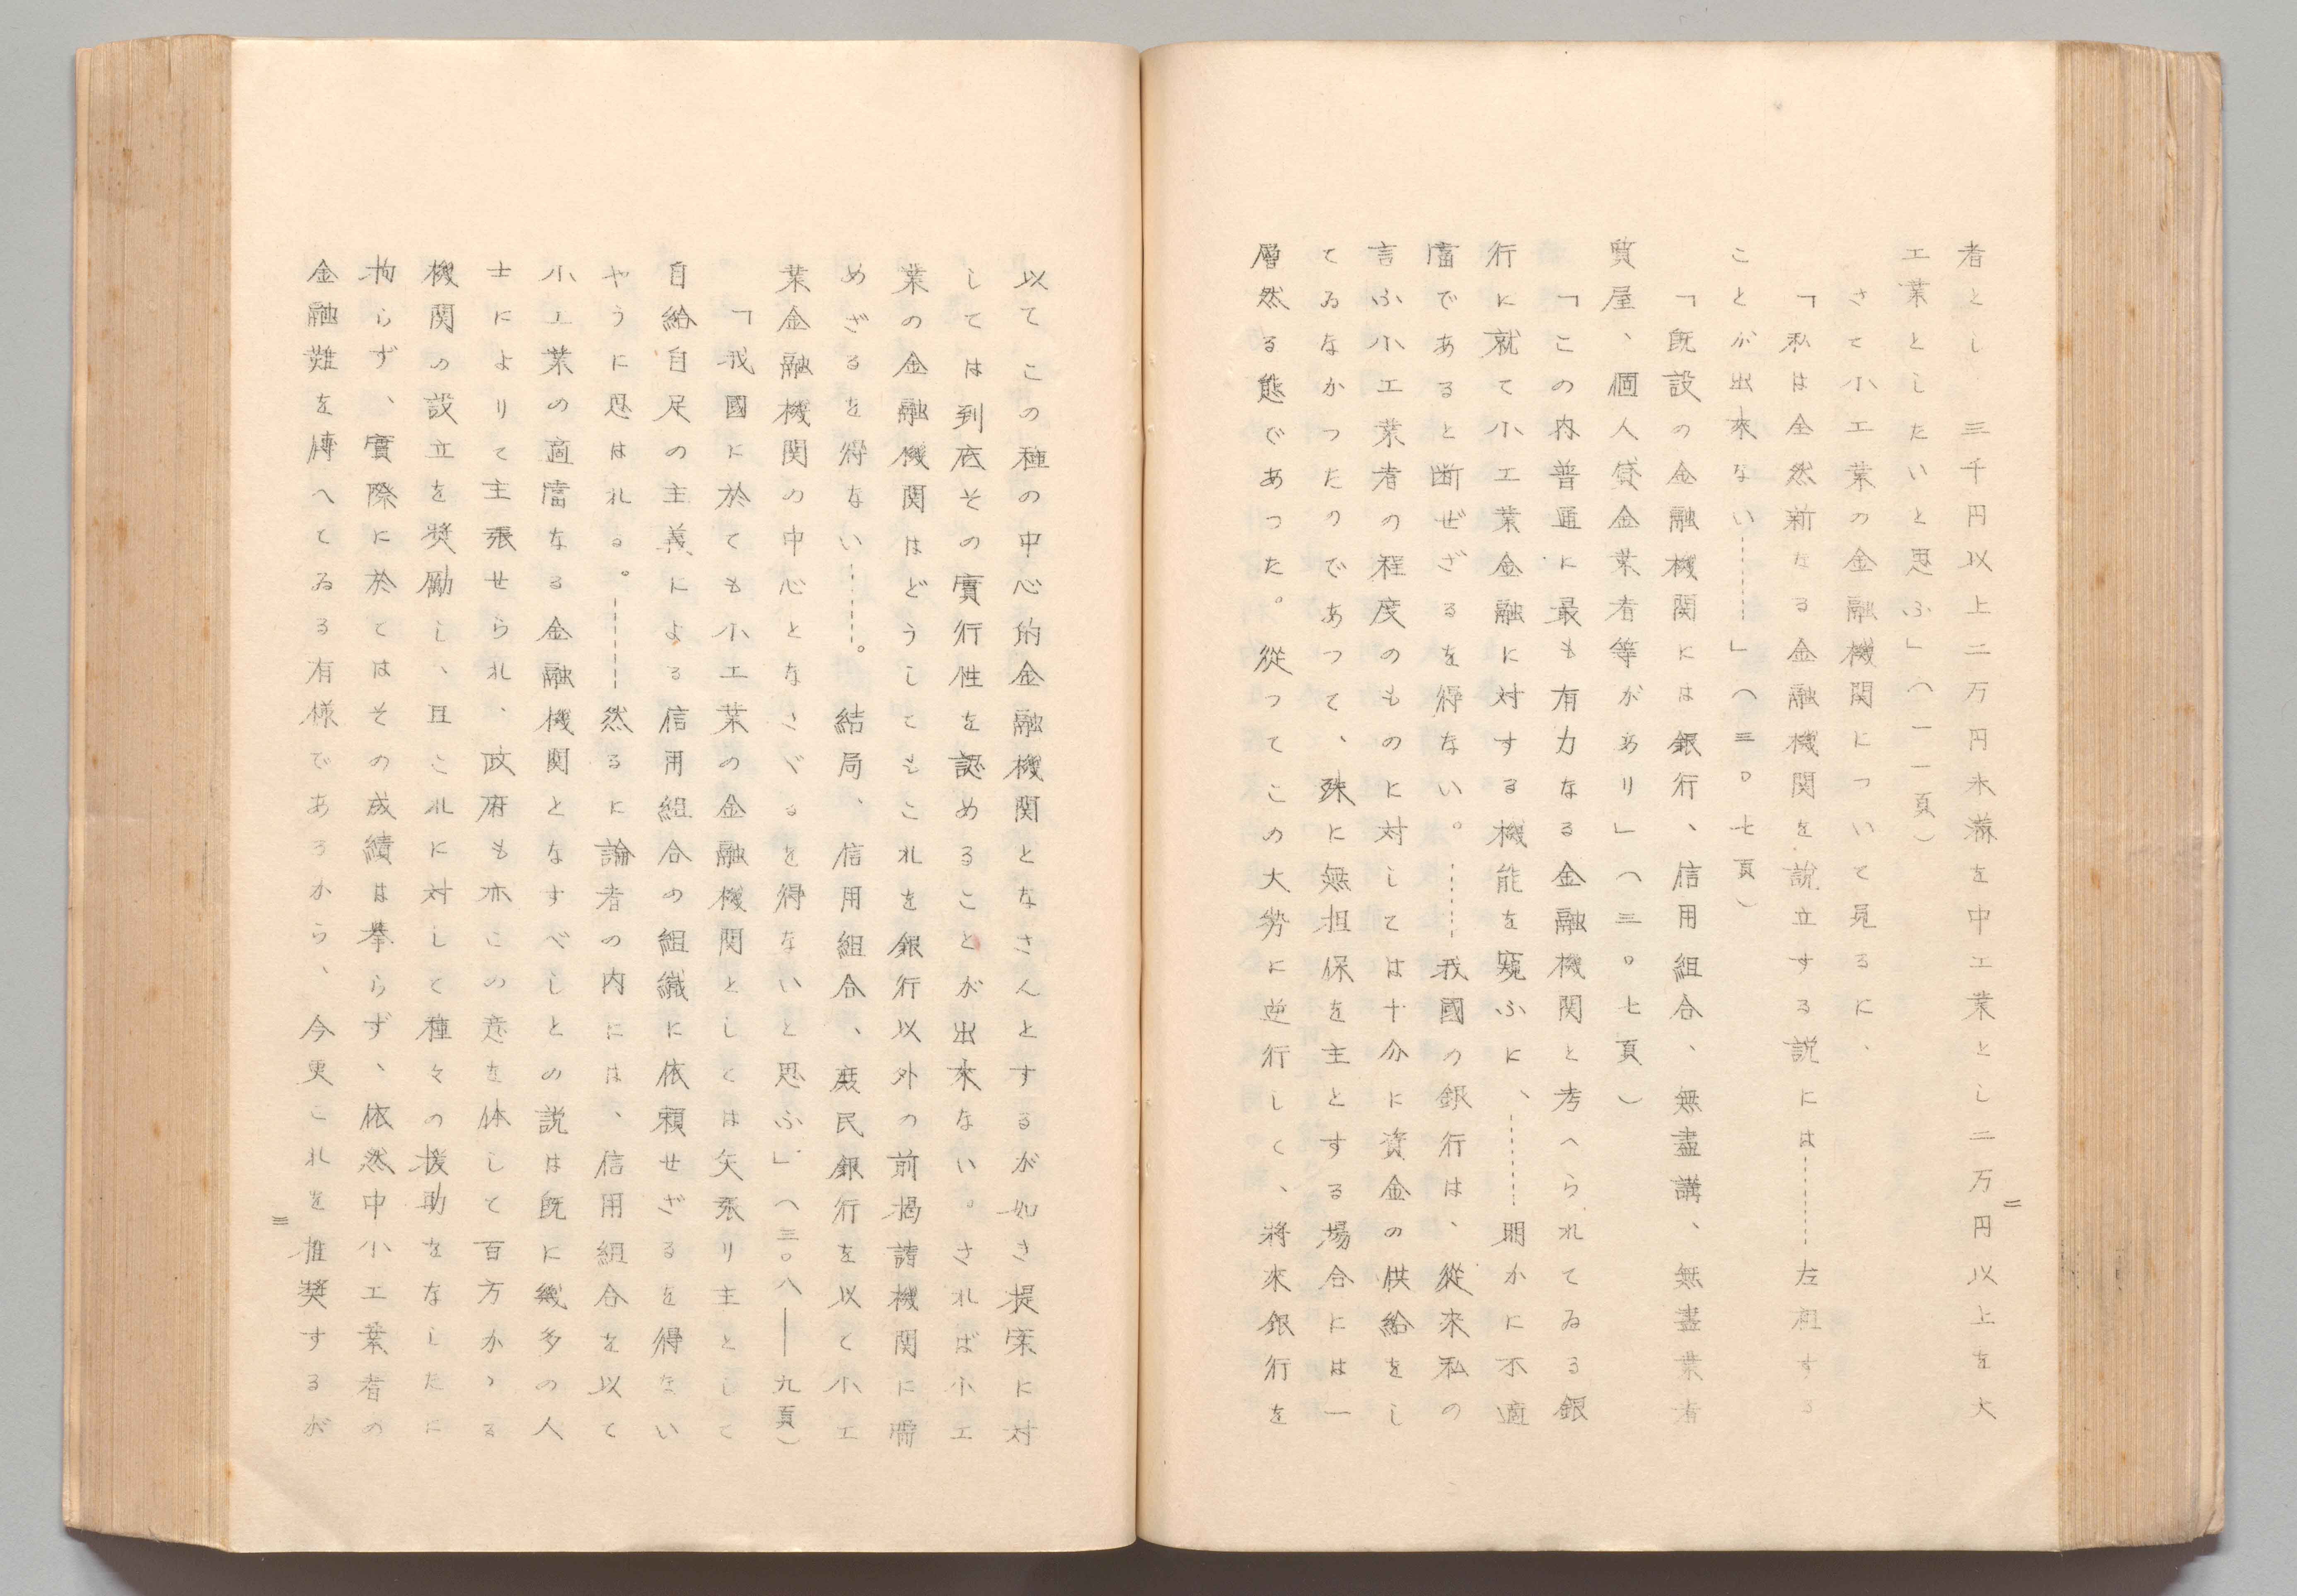 者とし三千円以上二万円未満を中工業とし二万円以上を大
工業としたいと思ふ」（一一頁）
さて小工業の金融機関について見るに、
「私は全然新なる金融機関を説立する説には………左袒する
ことが出來ない………」（三〇七頁）
「既設の金融機関には銀行、信用組合、無盡講、無盡業者
質屋、個人貸金業者等があり」（三〇七頁）
「この内普通に最も有力なる金融機関と考へられてゐる銀
行に就て小工業金融に対する機能を窺ふに、………明かに不適
當であると断ぜざるを得ない。………我國の銀行は、從來私の
言ふ小工業者の程度のものに対しては十分に資金の供給をし
てゐなかつたのであつて、殊に無担保を主とする場合には一
層然る態であつた。從つてこの大勢に逆行して、將來銀行を
二
以てこの種の中心的金融機関となさんとするが如き提案に対
しては到底その實行性を認めることが出來ない。されば小工
業の金融機関はどうしてもこれを銀行以外の前揭諸機関に需
めざるを得ない………。結局、信用組合、庶民銀行を以て小工
業金融機関の中心となさゞるを得ないと思ふ」（三〇八―九頁）
「我國に於ても小工業の金融機関としては矢張り主として
自給自足の主義による信用組合の組織に依頼せざるを得ない
やうに思はれる。………然るに論者の内には、信用組合を以て
小工業の適當なる金融機関となすべしとの説は既に幾多の人
士によりて主張せられ、政府も亦この意を体して百方かゝる
機関の設立を奬勵し、且これに対して種々の援助をなしたに
拘らず、實際に於てはその成績は挙らず、依然中小工業者の
金融難を傳へてゐる有様であるから、今更これを推奬するが
三